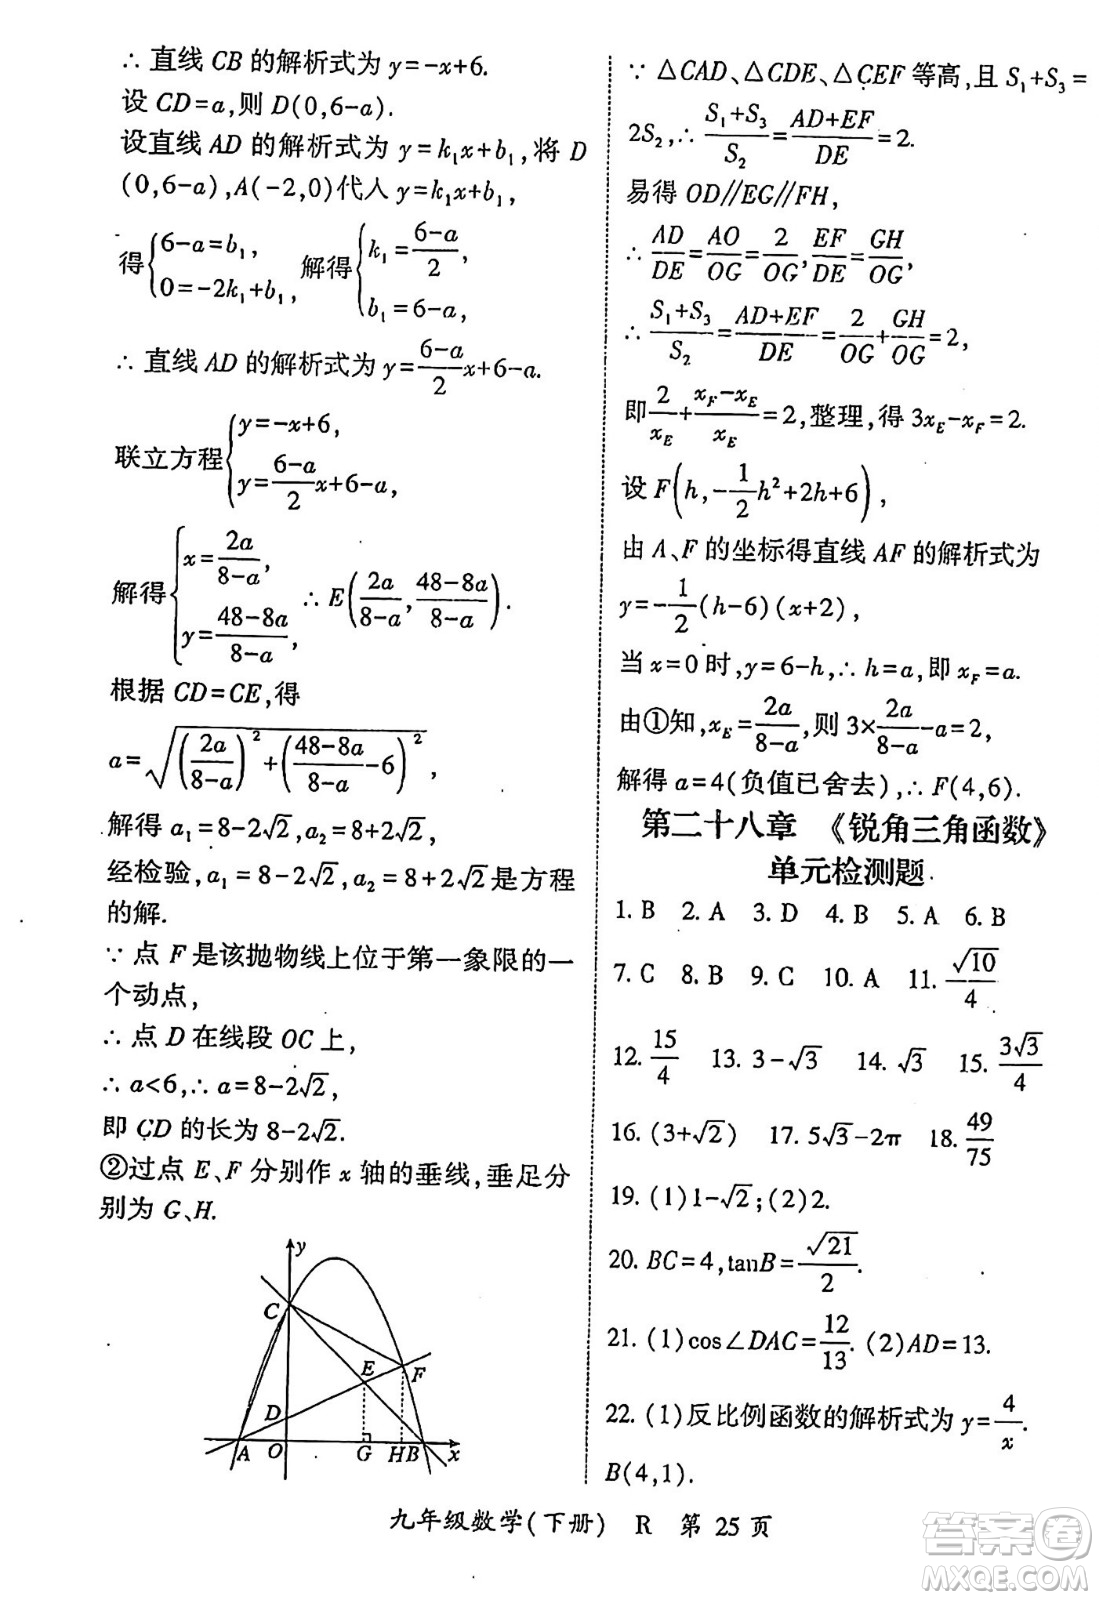 ∴ 直线 CB 的解析式为 y=-x+6.
设 CD=a,则 D(0,6-a).
设直线 AD 的解析式为 y=k₁x+b₁,将 D
(0,6-a),A(-2,0)代人 y=k₁x+b₁,
得{6-a=b₁, 0=-2k₁+b₁, 解得{k₁=(6-a)/2, b₁=6-a,
∴ 直线 AD 的解析式为 y=(6-a)/2 x+6-a.
联立方程{y=-x+6, y=(6-a)/2 x+6-a,
解得{x=2a/(8-a), y=(48-8a)/(8-a), ∴ E(2a/(8-a), (48-8a)/(8-a)).
根据 CD=CE,得
a=√((2a/(8-a))²+((48-8a)/(8-a)-6)²),
解得 a₁=8-2√2,a₂=8+2√2,
经检验,a₁=8-2√2,a₂=8+2√2是方程
的解.
∵ 点 F 是该抛物线上位于第一象限的一
个动点,
∴ 点 D 在线段 OC 上,
∴ a<6,∴ a=8-2√2,
即 CD 的长为 8-2√2.
②过点 E、F 分别作 x 轴的垂线,垂足分
别为 G、H.
y
C
E
F
D
A O G H B x
∵ △CAD、△CDE、△CEF 等高,且 S₁+S₃=
2S₂,∴ (S₁+S₃)/S₂=(AD+EF)/DE=2.
易得 OD∥EG∥FH,
∴ AD/DE=AO/OG=2/OG,EF/DE=GH/OG,
∴ (S₁+S₃)/S₂=(AD+EF)/DE=2/OG+GH/OG=2,
即2/x_E+(x_F-x_E)/x_E=2,整理,得 3x_E-x_F=2.
设 F(h,-1/2h²+2h+6),
由 A、F 的坐标得直线 AF 的解析式为
y=-1/2(h-6)(x+2),
当 x=0 时,y=6-h,∴ h=a,即 x_F=a.
由①知,x_E=2a/(8-a),则 3×2a/(8-a)-a=2,
解得 a=4(负值已舍去),∴ F(4,6).
第二十八章 《锐角三角函数》
单元检测题
1. B 2. A 3. D 4. B 5. A 6. B
7. C 8. B 9. C 10. A 11. √10/4
12. 15/4 13. 3-√3 14. √3 15. 3√3/4
16. (3+√2) 17. 5√3-2π 18. 49/75
19. (1)1-√2;(2)2.
20. BC=4,tanB=√21/2.
21. (1)cos∠DAC=12/13. (2)AD=13.
22. (1)反比例函数的解析式为 y=4/x.
B(4,1).
九年级数学(下册) R 第 25 页
答案圈
MXQE.COM